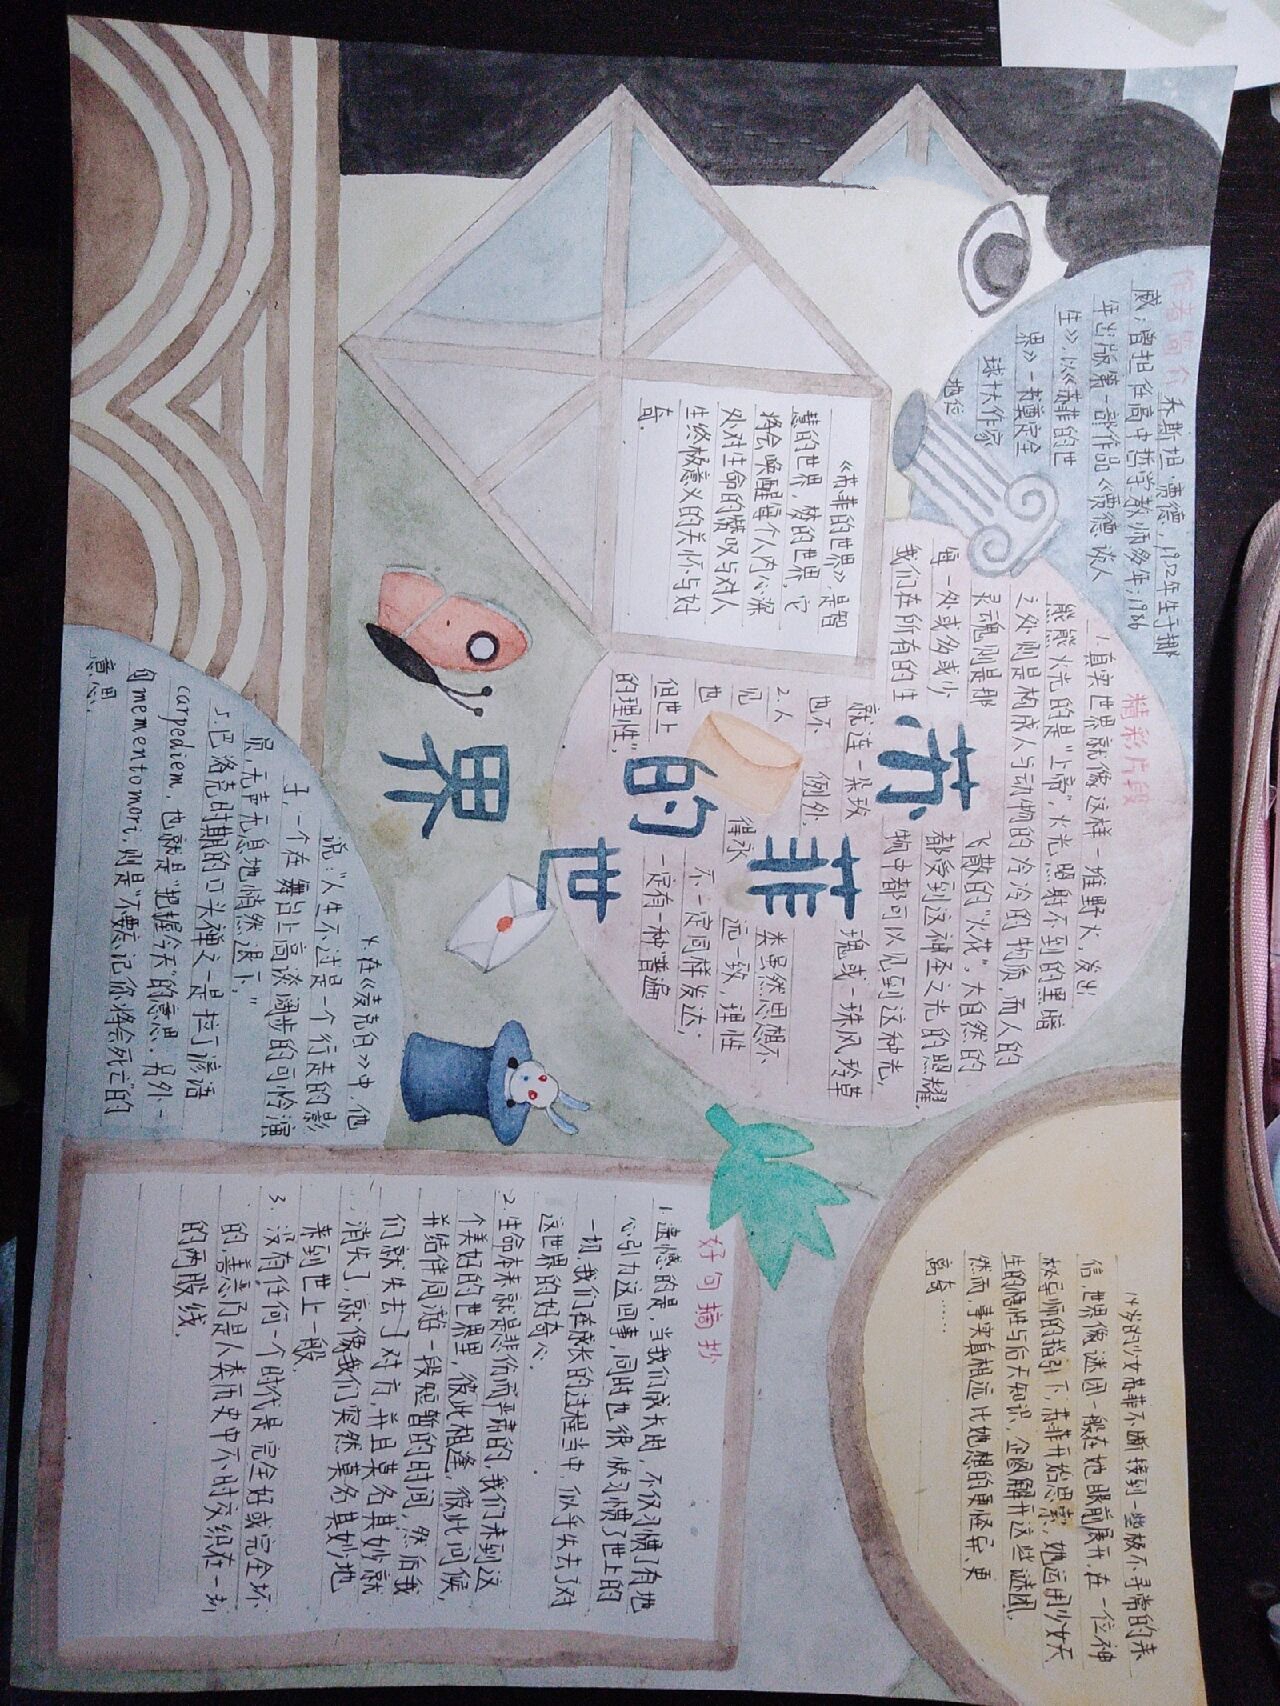 苏菲的世界
作者简介
乔斯坦·贾德，1952年生于挪
威；曾担任高中哲学教师多年；1986
年出版第一部作品《贾德谈人
生》，以《苏菲的世
界》一书奠定全
球十大作家
地位
《苏菲的世界》，是智
慧的世界，梦的世界，它
将会唤醒每个人内心深
处对生命的赞叹与对人
生终极意义的关怀与好
奇。
精彩片段
1.真实世界就像这样一堆野火，发出
熊熊火光的是“上帝”，火光照射不到的黑暗
之处则是构成人与动物的冷冷的物质，而人的
灵魂则是那飞散的“火花”，大自然的
每一处或多或少都受到这神圣之光的照耀，
我们在所有的生物中都可以见到这种光，
就连一朵玫瑰或一珠风玲草
也不例外。
2.人类虽然思想不
见得永远一致，理性
也不一定同样发达；
但世上一定有一种“普遍
的理性”，
4.在《麦克白》中，他
说：“人生不过是一个行走的影
子，一个在舞台上高谈阔步的可怜演
员，无声无息地悄然退下，”
5.巴洛克时期的口头禅之一是拉丁谚语
carpediem，也就是“把握今天”的意思．另外一
句mementomori，则是“不要忘记你将会死亡”的
意思．
14岁的少女苏菲不断接到一些极不寻常的来
信，世界像谜团一般在她眼前展开，在一位神
秘导师的指引下，苏菲开始思索，她运用少女天
生的悟性与后天知识，企图解开这些谜团，
然而，事实真相远比她想的更怪异、更
离奇……
好句摘抄
1.遗憾的是，当我们成长时，不仅习惯了有地
心引力这回事，同时也很快习惯了世上的
一切．我们在成长的过程当中，似乎失去了对
这世界的好奇心．
2.生命本来就是悲伤而严肃的，我们来到这
个美好的世界里，彼此相逢，彼此问候，
并结伴同游一段短暂的时间，然后我
们就失去了对方，并且莫名其妙就
消失了，就像我们突然莫名其妙地
来到世上一般．
3.没有任何一个时代是完全好或完全坏
的，善恶乃是人类历史中不时交织在一起
的两股线．